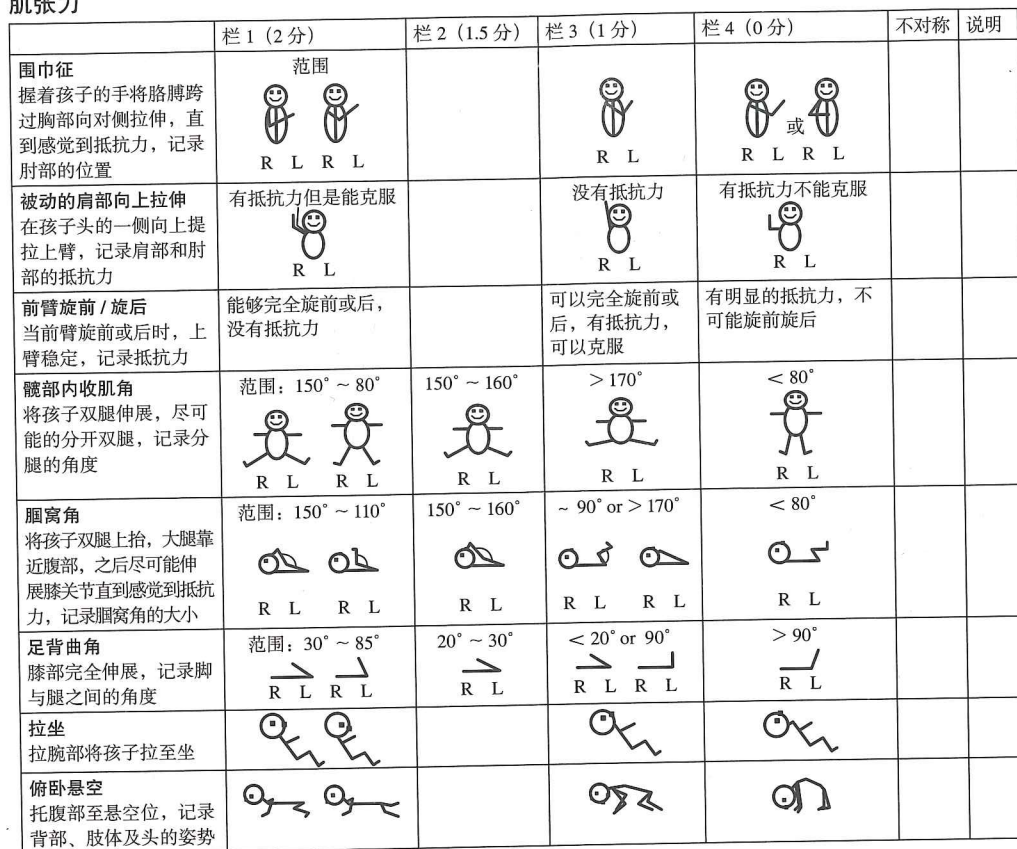 肌张力
栏 1（2 分） 栏 2（1.5 分） 栏 3（1 分） 栏 4（0 分） 不对称 说明
围巾征
握着孩子的手将胳膊跨
过胸部向对侧拉伸，直
到感觉到抵抗力，记录
肘部的位置
范围
R L R L
R L
或
R L R L
被动的肩部向上拉伸
在孩子头的一侧向上提
拉上臂，记录肩部和肘
部的抵抗力
有抵抗力但是能克服
R L
没有抵抗力
R L
有抵抗力不能克服
R L
前臂旋前 / 旋后
当前臂旋前或后时，上
臂稳定，记录抵抗力
能够完全旋前或后，
没有抵抗力
可以完全旋前或
后，有抵抗力，
可以克服
有明显的抵抗力，不
可能旋前旋后
髋部内收肌角
将孩子双腿伸展，尽可
能的分开双腿，记录分
腿的角度
范围：150° ~ 80°
R L R L
150° ~ 160°
R L
> 170°
R L
< 80°
R L
腘窝角
将孩子双腿上抬，大腿靠
近腹部，之后尽可能伸
展膝关节直到感觉到抵抗
力，记录腘窝角的大小
范围：150° ~ 110°
R L R L
150° ~ 160°
R L
~ 90° or > 170°
R L R L
< 80°
R L
足背曲角
膝部完全伸展，记录脚
与腿之间的角度
范围：30° ~ 85°
R L R L
20° ~ 30°
R L
< 20° or 90°
R L R L
> 90°
R L
拉坐
拉腕部将孩子拉至坐
俯卧悬空
托腹部至悬空位，记录
背部、肢体及头的姿势